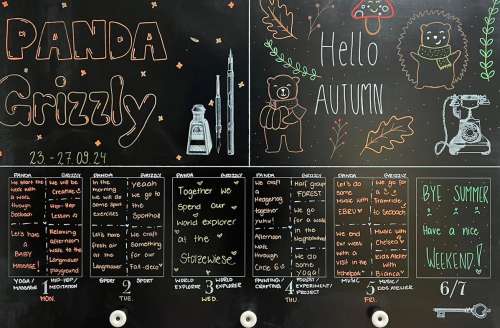 PANDA
Grizzly
23.-27.09.24
Hello
AUTUMN
PANDA GRIZZLY
We start the
week with
a walk
through
Seebach
Let's have
a
BABY
MASSAGE!
We will be
Creative
Hip-Hop
Lesson
Relaxing
afternoon
walk to the
Langmauer
playground
YOGA/
MASSAGE
1
HIP-HOP/
MEDITATION
MON.
PANDA GRIZZLY
In the
morning
we will do
some Sport
exercises
Let's
more
fresh air
at the
Langmauer
yeaah
we go to
the
Sporthall
We craft
Something
for our
Fall-deco
SPORT
2
SPORT
TUE.
PANDA GRIZZLY
Together we
Spend our
world explorer
at the
Storzewiese
WORLD
EXPLORER
3
WORLD
EXPLORER
WED.
PANDA GRIZZLY
We craft
a
Hedgehog
together
yuhu!
Afternoon
walk
through
Circle 6
Half group
FOREST
We go
for a walk
in the
neighborhood
We do
some
Yoga!
PAINTING/
CRAFTING
4
FOREST/
EXPERIMENT/
PROJECT
THU
PANDA GRIZZLY
Let's do
some
music with
EBRU
We end
our week
with a
visit in the
We go for
a
Tramride
to Seebach
Music with
Chelsea
Kids Atelier
with
Bianca
MUSIC
5
MUSIC/
KIDS ATELIER
FRI.
BYE SUMMER
Have a nice
WEEKEND!
6/7